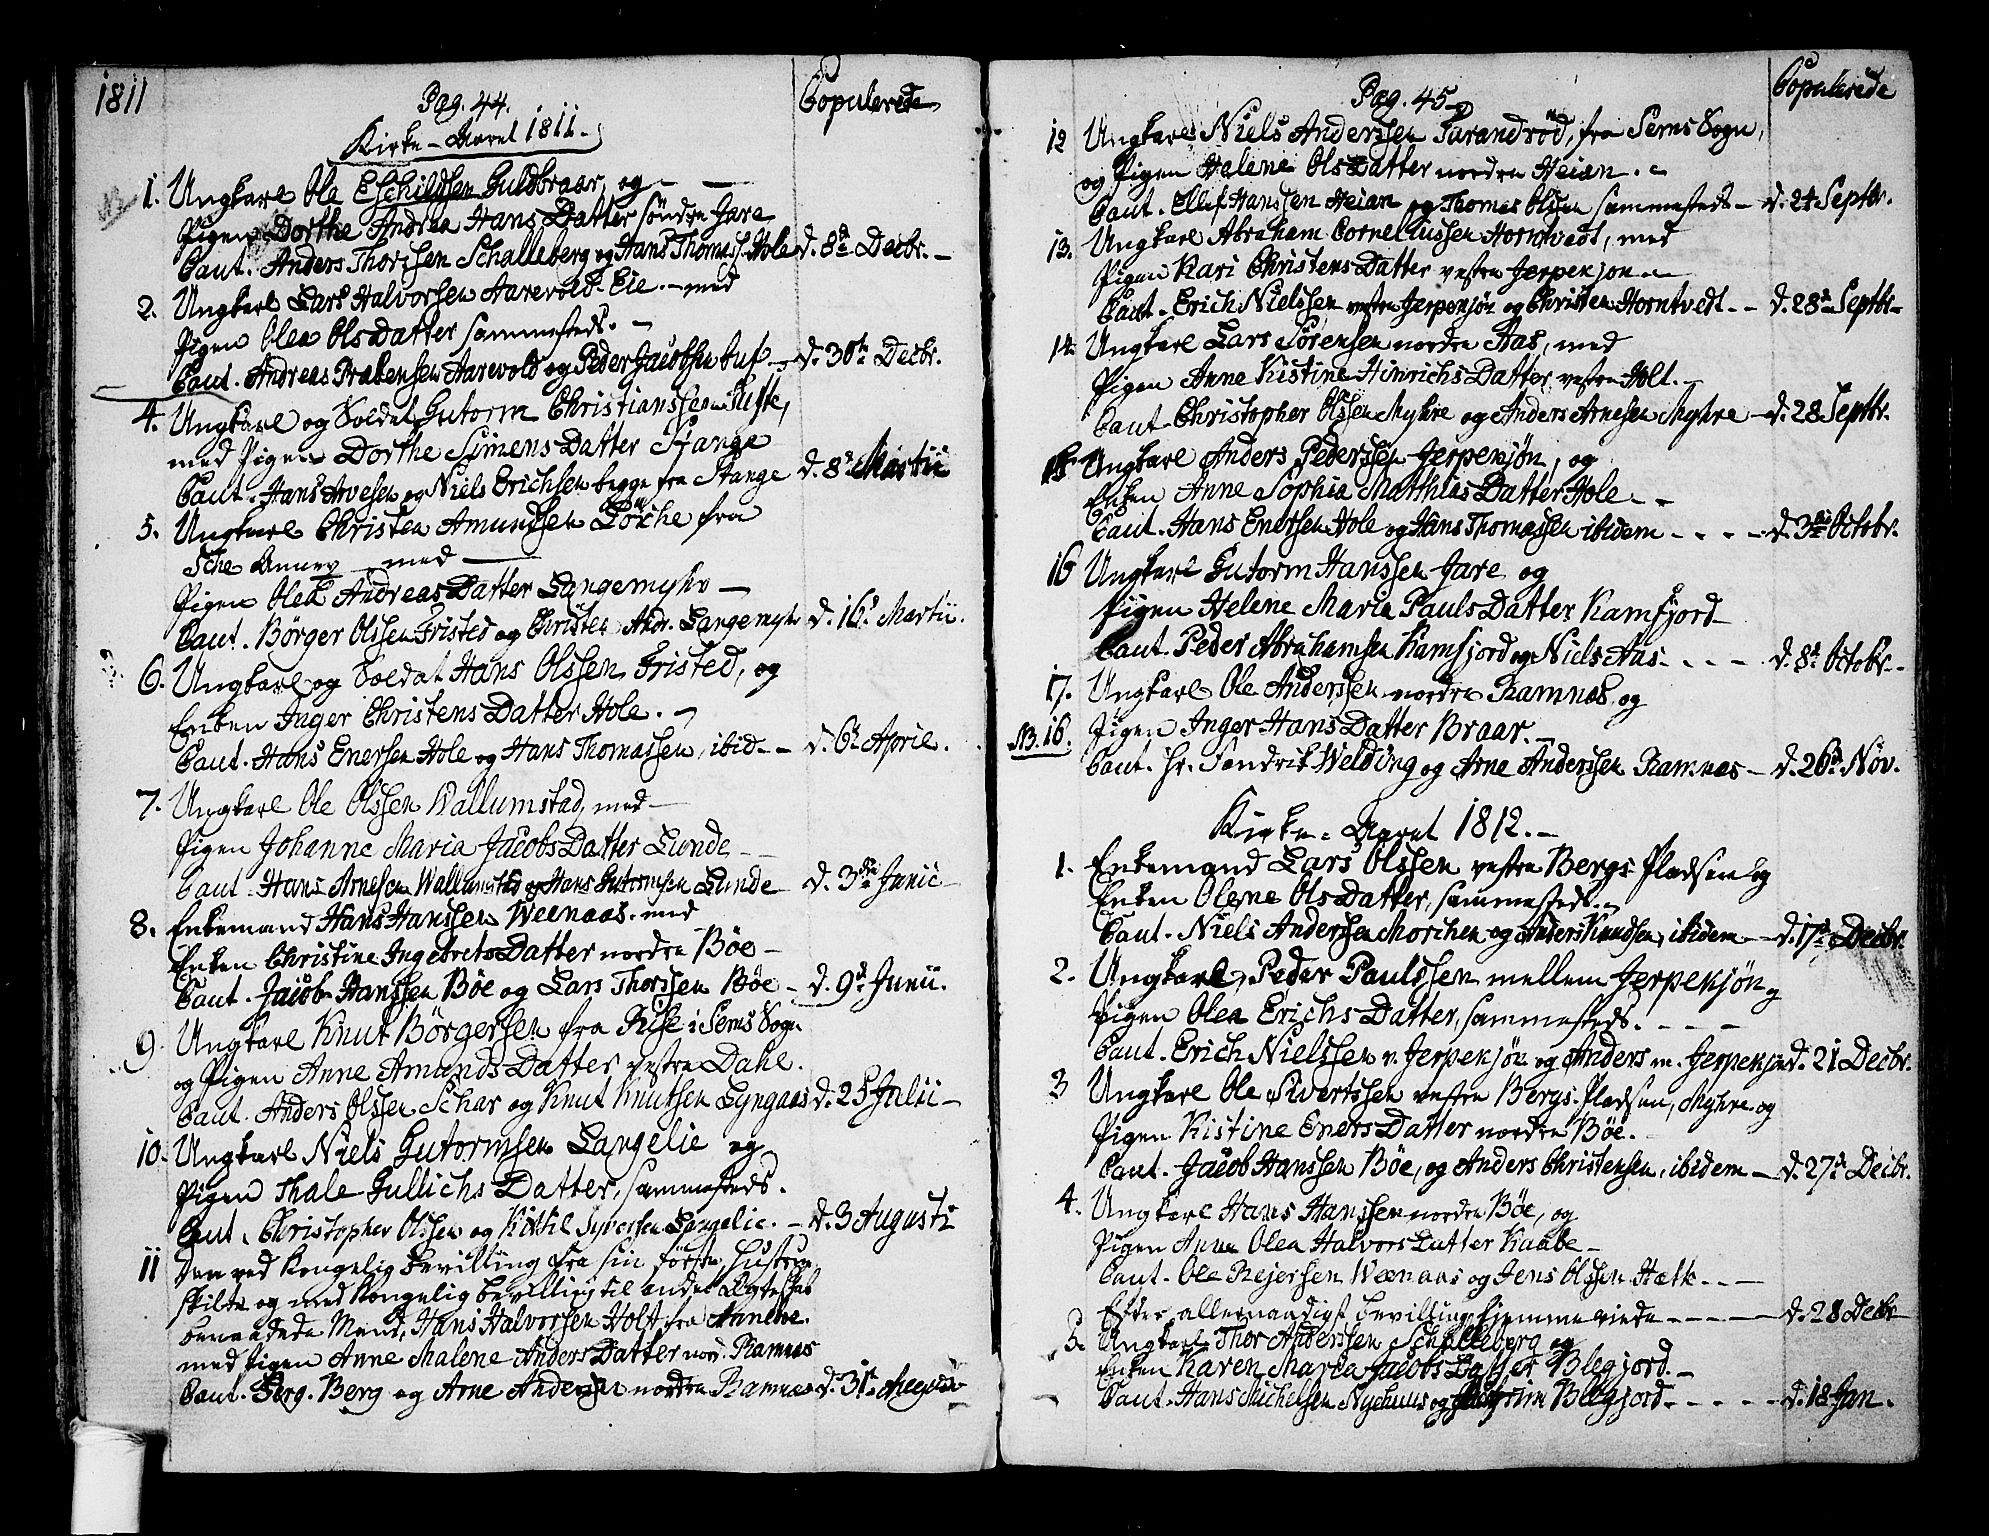 1811
Pag. 44.
Copulerede
Kirke-Aaret 1811.
1. Ungkarl Ole Eschildsen Guldbraar, og
Pigen Dorthe Andrea Hans Datter søndre Jare
Caut. Anders Thorssen Schalleberg og Hans Thomass. Hole d. 8de Decbr.
2. Ungkarl Lars Halvorsen Aarevold-Eie. med
Pigen Olea OlsDatter sammesteds.
Caut. Andreas Prebensen Aarevold og Peder Jacobsen d. 30te Decbr.
4. Ungkarl og Soldat Gutorm Christianssen Tufte,
med Pigen Dorthe Simens Datter Stange
Caut. Hans Arvesen og Niels Erichsen begge fra Stange d. 8de Martii
5. Ungkarl Christen Amundsen fra
med
Pigen Olea Andreas Datter Langemyhr
Caut. Børger Olssen Fristed og Christen Andr. Langemyhr d. 16d Martii.
6. Ungkarl og Soldat Hans Olssen Fristed, og
Enken Inger Christens Datter Hole.
Caut. Hans Enersen Hole og Hans Thomassen, ibid. d. 6te April.
7. Ungkarl Ole Olssen Wallumstad, med
Pigen Johanne Maria Jacobs Datter Lunde
Caut. Hans Arnesen Wallumstad og Hans Gutormsen Lunde d. 3die Junii
8. Enkemand Hans Hanssen Weenaas. med
Enken Christine Ingebrets Datter nordre Bøe
Caut. Jacob Hanssen Bøe og Lars Thorssen Bøe d. 9de Junii.
9. Ungkarl Knut Børgersen fra Rise i Sems Sogn
og Pigen Anne Amunds Datter vestre Dahl.
Caut. Anders Olssen Schar og Knut Knutsen Lyngaas d. 25 Julii
10. Ungkarl Niels Gutormsen Langelie og
Pigen Thale Gullichs Datter, sammesteds.
Caut. Christopher Olssen og Kittil Syversen Langelie. d. 3 Augusti
11 Den ved Kongelig Bevilling fra sin første Hustrue
skilte og med Kongelig bevilling til andet Ægteskab
benaadede Mand, Hans Halvorsen Holt fra
med Pigen Anne Malene Anders Datter nor. Ramnas
Caut. Berg og Arne Andersen nordre Ramnas d. 31te Augusti
Pag. 45
Copulerede
12 Ungkarl Niels Anderssen Farandrød, fra Sems Sogn,
og Pigen Halene Ols Datter nordre Heian.
Caut. Ellef Hanssen Heian og Thomas Olssen sammesteds d. 24 Septbr.
13. Ungkarl Abraham Corneliussen Horntvedt, med
Pigen Kari Christens Datter vestre Jerpekjøn
Caut. Erich Nielssen vestre Jerpekjøn og Christen Horntvedt d. 28de Septbr
14 Ungkarl Lars Sørensen nordre Aas, med
Pigen Anne Kistine Hinrichs Datter vestre Holt.
Caut. Christopher Olssen Myhre og Anders Arnesen Myhre d. 28 Septbr.
15 Ungkarl Anders Pederssen Jerpekjøn, og
Enken Anne Sophia Matthias Datter Hole
Caut. Hans Enersen Hole og Hans Thomassen ibidem d. 3die Octobr.
16 Ungkarl Gutorm Hanssen Jare og
Pigen Helene Maria Pauls Datter Kamfjord
Caut. Peder Abrahamsen Kamfjord og Niels Aas. d. 8de Octobr.
17. Ungkarl Ole Anderssen nordre Ramnas, og
NB. 16. Pigen Inger Hans Datter Braar.
Caut. Hr. Welding og Arne Anderssen Ramnas d. 26de Nov.
Kirke-Aaret 1812.
1. Enkemand Lars Olssen vestre Bergs Pladsen og
Enken Olene Ols Datter, sammesteds.
Caut. Niels Anderssen Morchen og Anders Knudsen, ibidem d. 17de Decbr.
2. Ungkarl Peder Paulssen mellem Jerpekjøn og
Pigen Olea Erichs Datter, sammesteds.
Caut. Erich Nielssen v. Jerpekjøn og Anders m. Jerpekjøn d. 21 Decbr.
3 Ungkarl Ole Sivertssen vestre Bergs-Pladsen, Myhre og
Pigen Kistine Eners Datter nordre Bøe.
Caut. Jacob Hanssen Bøe, og Anders Christensen, ibidem d. 27de Decbr.
4. Ungkarl Hans Hanssen nordre Bøe, og
Pigen Anne Olea Halvors Datter Kaabe
Caut. Ole Rejersen Weenaas og Jens Olssen Hætk
Efter allernaadigst bevilling hjemmeviede d. 28 Decbr
5. Ungkarl Thor Anderssen Schalleberg og
Enken Karen Maria Jacobs Datter Blegjord.
Caut. Hans Michelsen Nyehuus og Blegjord d. 18 Jan.